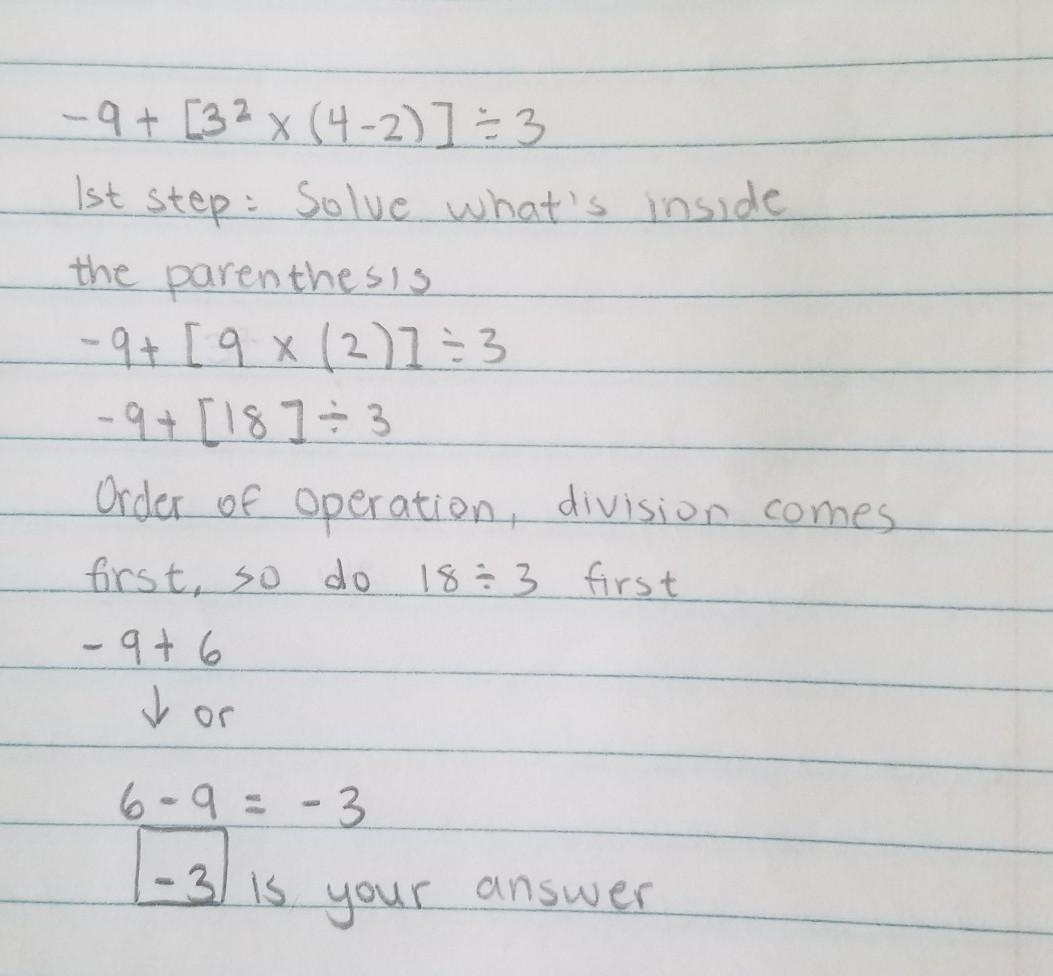 -9 + [3² × (4-2)] ÷ 3
1st step: Solve what's inside
the parenthesis
-9+ [9 × (2)] ÷ 3
-9+ [18] ÷ 3
Order of operation, division comes
first, so do 18 ÷ 3 first
-9+ 6
↓ or
6-9 = -3
-3 is your answer